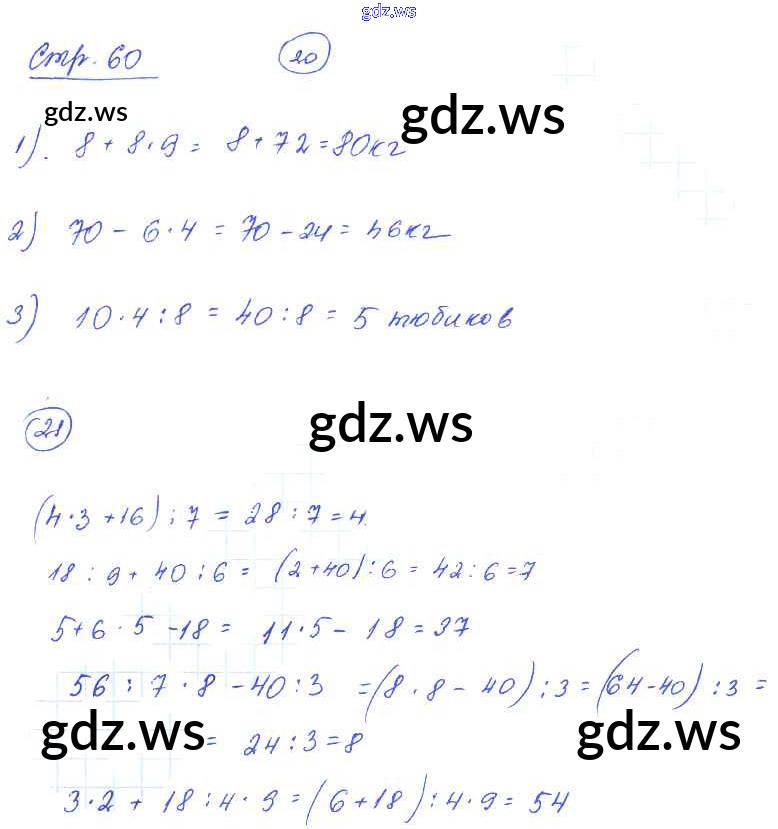 gdz.ws
Стр. 60 20
gdz.ws gdz.ws
1). 8 + 8·9 = 8+72=80кг
2) 70 - 6·4 = 70-24 = 46кг
3) 10·4:8 = 40:8 = 5 тюбиков
21 gdz.ws
(4·3+16):7 = 28:7=4.
18:9+40:6 = (2+40):6 = 42:6=7
5+6·5-18 = 11·5-18=37
56:7·8-40:3 =(8·8-40):3=(64-40):3=
gdz.ws = 24:3=8 gdz.ws
3·2+18:4·9=(6+18):4·9=54